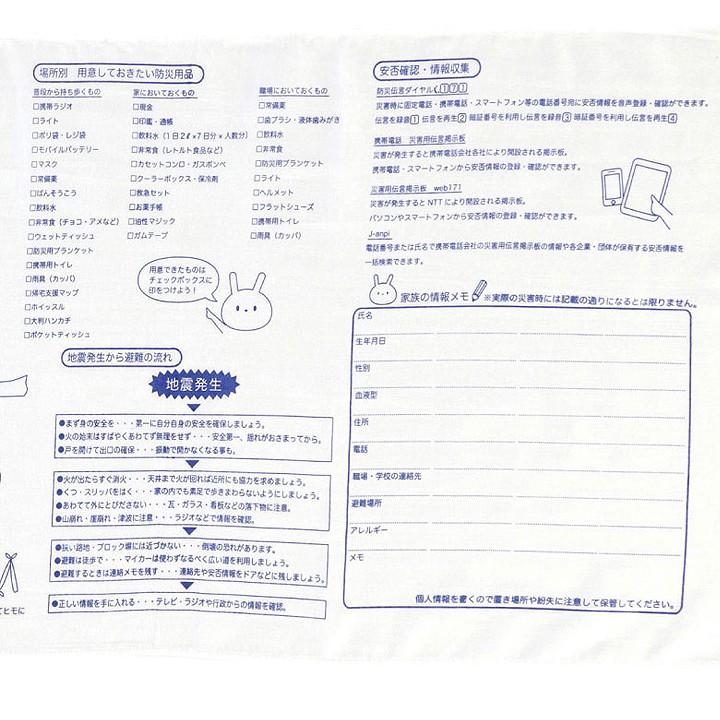 場所別　用意しておきたい防災用品
普段から持ち歩くもの
□携帯ラジオ
□ライト
□ポリ袋・レジ袋
□モバイルバッテリー
□マスク
□常備薬
□ばんそうこう
□飲料水
□非常食（チョコ・アメなど）
□ウェットティッシュ
□防災用ブランケット
□携帯用トイレ
□雨具（カッパ）
□帰宅支援マップ
□ホイッスル
□大判ハンカチ
□ポケットティッシュ
家においておくもの
□現金
□印鑑・通帳
□飲料水（１日２ℓ×７日分×人数分）
□非常食（レトルト食品など）
□カセットコンロ・ガスボンベ
□クーラーボックス・保冷剤
□救急セット
□お薬手帳
□油性マジック
□ガムテープ
職場においておくもの
□常備薬
□歯ブラシ・液体歯みがき
□飲料水
□非常食
□防災用ブランケット
□ライト
□ヘルメット
□フラットシューズ
□携帯用トイレ
□雨具（カッパ）
用意できたものは
チェックボックスに
印をつけよう！
地震発生から避難の流れ
地震発生
●まず身の安全を・・・第一に自分自身の安全を確保しましょう。
●火の始末はすばやくあわてず無理をせず・・・安全第一、揺れがおさまってから。
●戸を開けて出口の確保・・・振動で開かなくなる事も。
●火が出たらすぐ消火・・・天井まで火が回れば近所にも協力を求めましょう。
●くつ・スリッパをはく・・・家の内でも素足で歩きまわらないようにしましょう。
●あわてて外にとびださない・・・瓦・ガラス・看板などの落下物に注意。
●山崩れ・崖崩れ・津波に注意・・・ラジオなどで情報を確認。
●狭い路地・ブロック塀には近づかない・・・倒壊の恐れがあります。
●避難は徒歩で・・・マイカーは使わずなるべく広い道を利用しましょう。
●避難するときは連絡メモを残す・・・連絡先や安否情報をドアなどに残しましょう。
●正しい情報を手に入れる・・・テレビ・ラジオや行政からの情報を確認。
てヒモに
安否確認・情報収集
防災伝言ダイヤル 171
災害時に固定電話・携帯電話・スマートフォン等の電話番号宛に安否情報を音声登録・確認ができます。
伝言を録音1 伝言を再生2 暗証番号を利用し伝言を録音3 暗証番号を利用し伝言を再生4
携帯電話　災害用伝言掲示板
災害が発生すると携帯電話会社各社により開設される掲示板。
携帯電話・スマートフォンから安否情報の登録・確認ができます。
災害用伝言掲示板　web171
災害が発生すると NTT により開設される掲示板。
パソコンやスマートフォンから安否情報の登録・確認ができます。
J-anpi
電話番号または氏名で携帯電話会社の災害用伝言掲示板の情報や各企業・団体が保有する安否情報を
一括検索できます。
家族の情報メモ ※実際の災害時には記載の通りになるとは限りません。
氏名
生年月日
性別
血液型
住所
電話
職場・学校の連絡先
避難場所
アレルギー
メモ
個人情報を書くので置き場所や紛失に注意して保管してください。